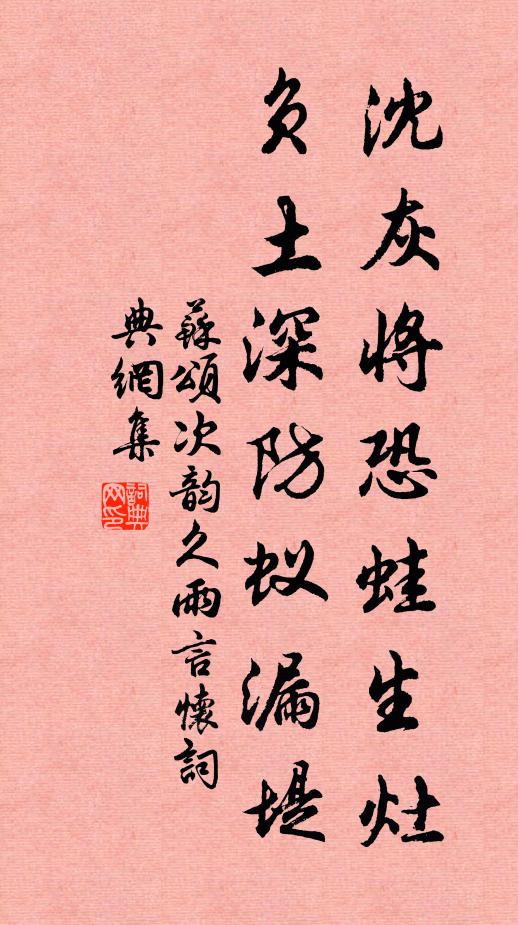 沈灰将恐蛙生灶
负土深防蚁漏堤
蘇頌次韵久雨言懷詞
典網集
詞典网印